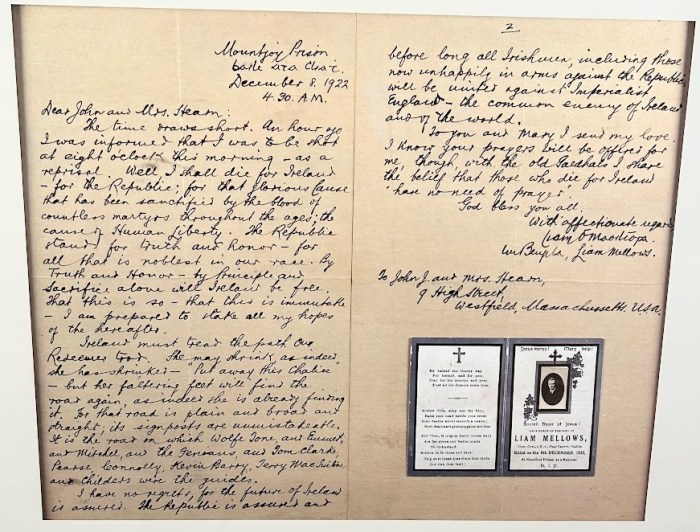 Mountjoy Prison
Baile Áta Cliat
December 8. 1922
4.30. A.M.
Dear John and Mrs. Hearn:
The time draws short. An hour ago
I was informed that I was to be shot
at eight oclock this morning - as a
reprisal. Well I shall die for Ireland
- for the Republic; for that glorious cause
that has been sanctified by the blood of
countless martyrs throughout the ages; the
cause of Human Liberty. The Republic
stands for truth and honor - for
all that is noblest in our race. By
Truth and Honor - by principle and
sacrifice alone will Ireland be free.
That this is so - that this is immutable
- I am prepared to stake all my hopes
of the hereafter.
Ireland must tread the path Our
Redeemer trod. She may shrink, as indeed
she has shrunken - "Put away this Chalice"
- but her faltering feet will find the
road again, as indeed she is already finding
it. For that road is plain and broad and
straight; its signposts are unmistakeable.
It is the road on which Wolfe Tone, and Emmet,
and Mitchel, and the Fenians, and Tom Clarke,
Pearse, Connolly, Kevin Barry, Terry MacSwiney
and Childers were the guides.
I have no regrets, for the future of Ireland
is assured. The Republic is assured and
2
before long all Irishmen, including those
now unhappily in arms against the Republic
will be united against Imperialist
England - the common enemy of Ireland
and of the world.
To you and Mary I send my love.
I know your prayers will be offered for
me, though, with the old Gaedhals I share
the belief that those who die for Ireland
"have no need of prayer".
God bless you all.
With affectionate regards
Liam Ó Maoilíosa
Liam Mellows.
To John J. and Mrs. Hearn,
9 High Street,
Westfield, Massachussetts. U.S.A.
Jesus mercy! Mary help!
Sacred Heart of Jesus!
LIAM MELLOWS,
8th DECEMBER, 1922,
R.I.P.